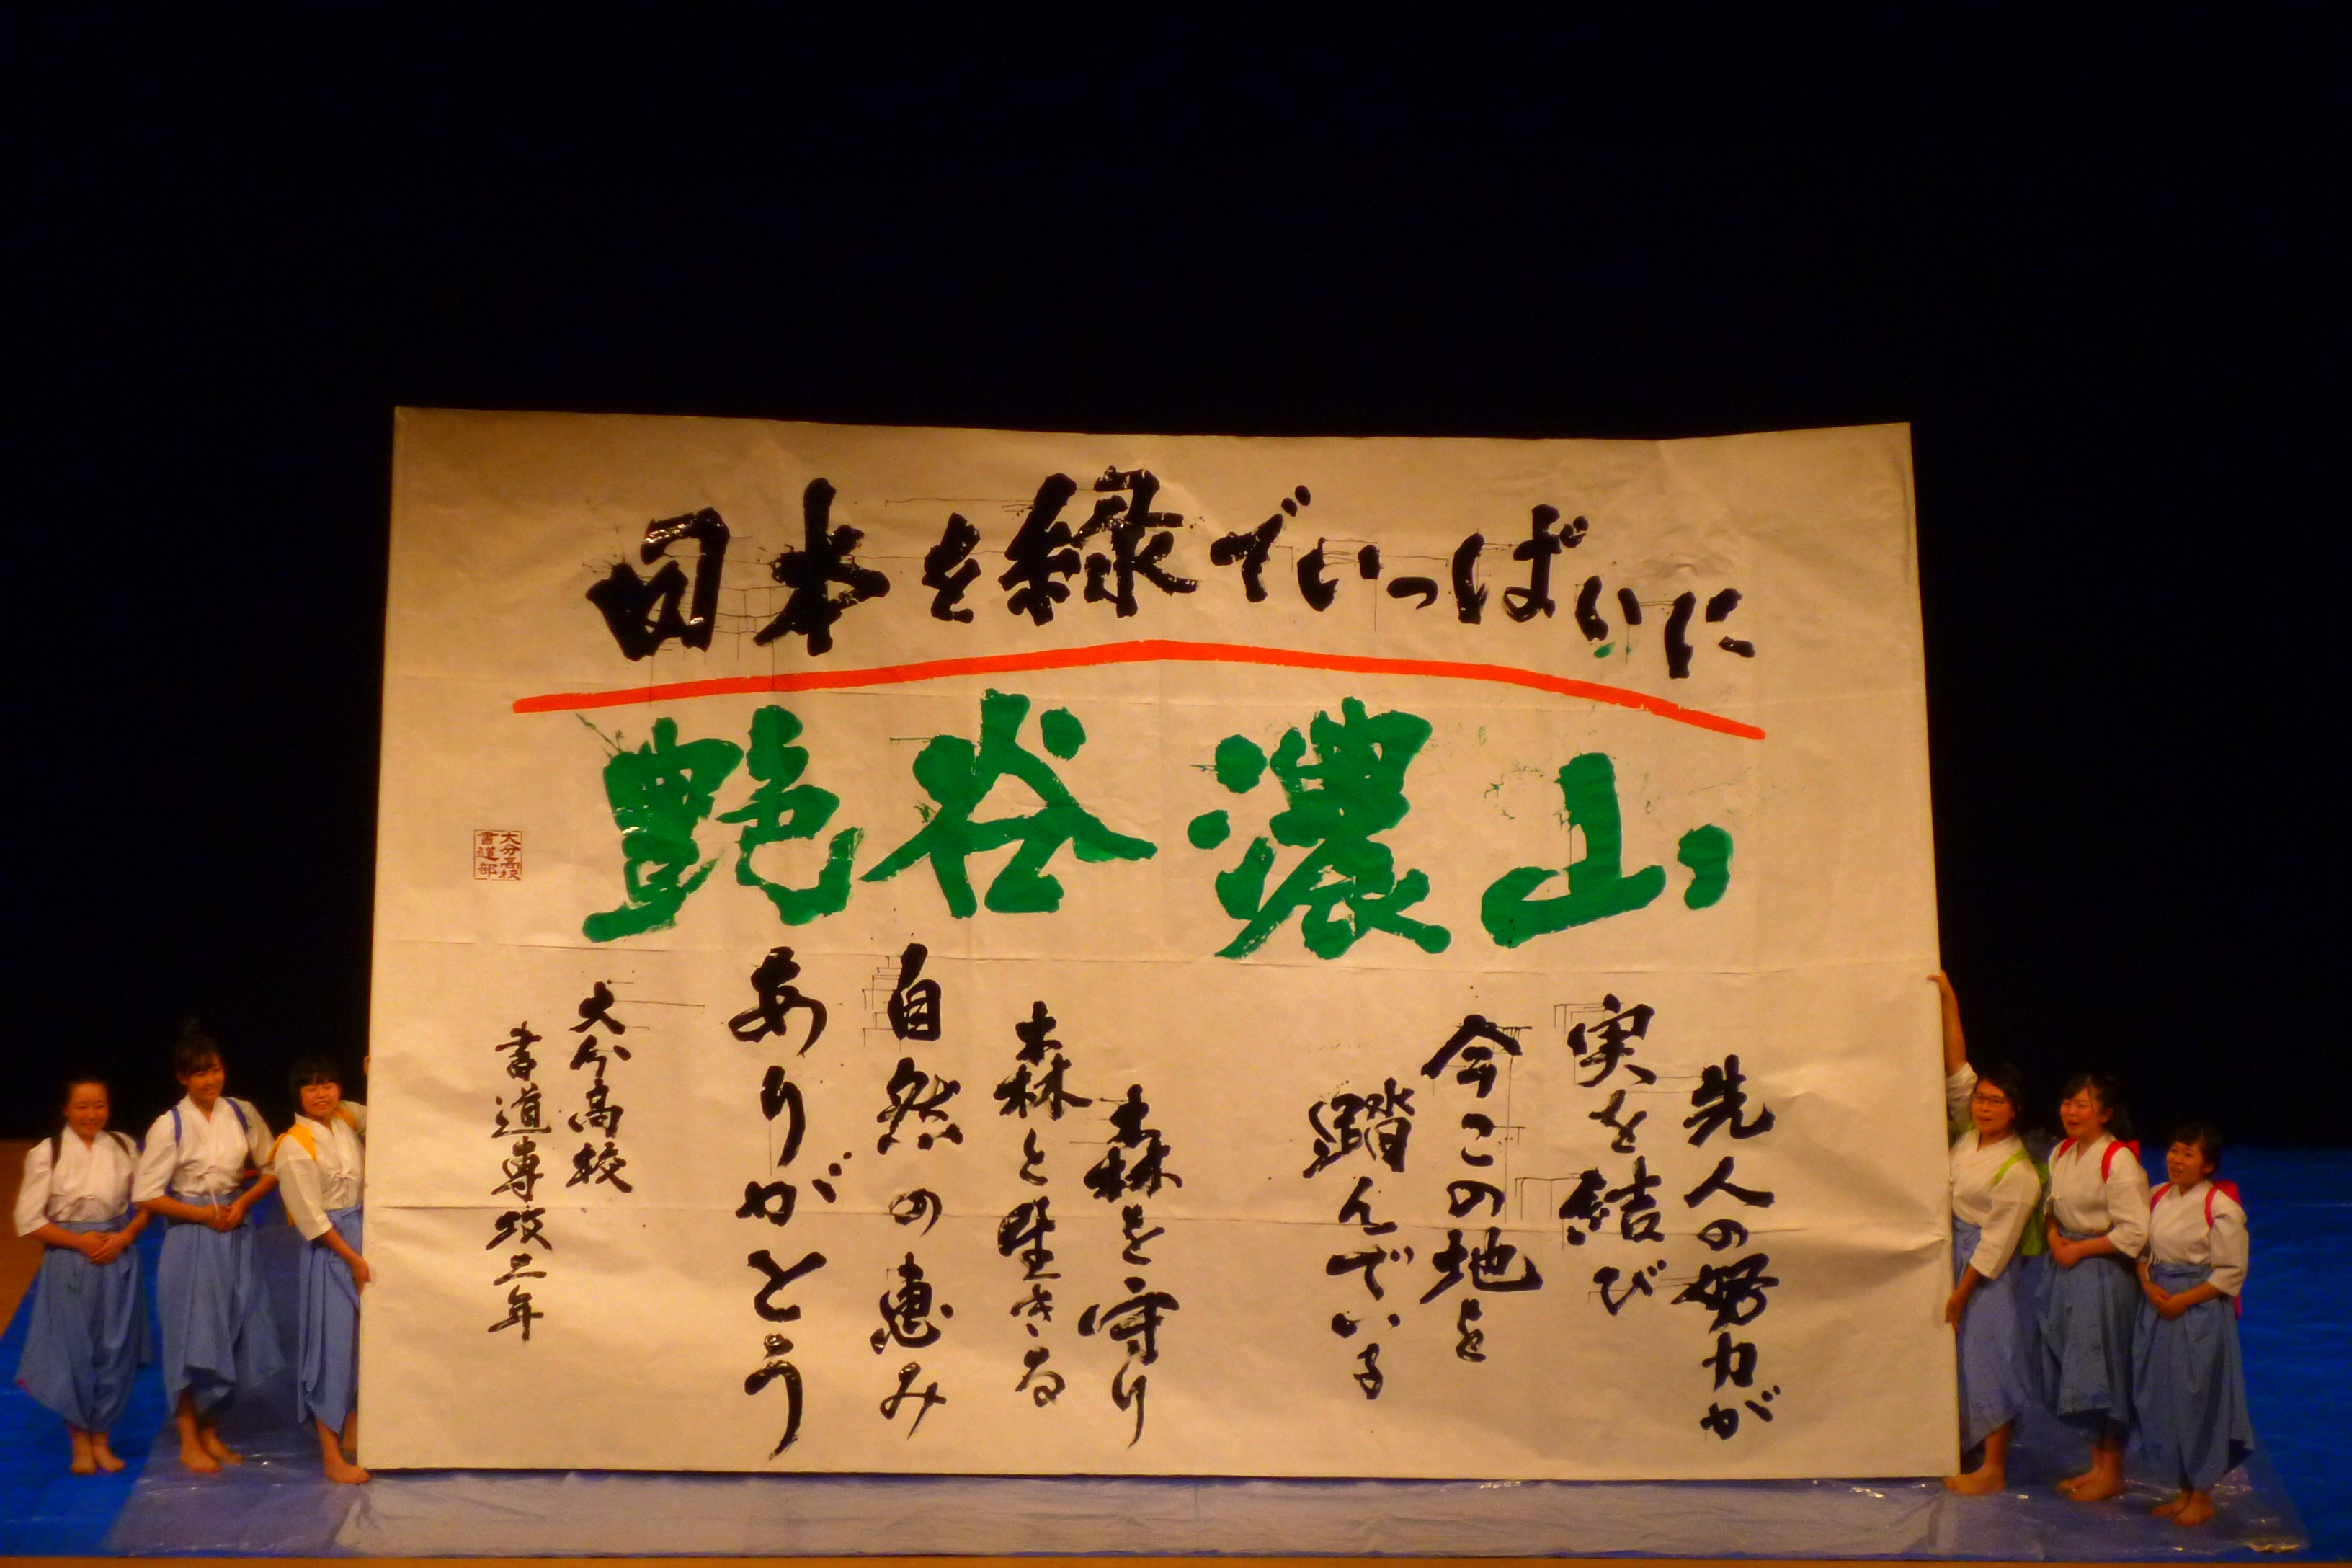 日本を緑でいっぱいに
山濃谷艶
先人の努力が
実を結び
今この地を
踏んでいる
森を守り
森と生きる
自然の恵み
ありがとう
大分高校
書道専攻三年
大分高校
書道部